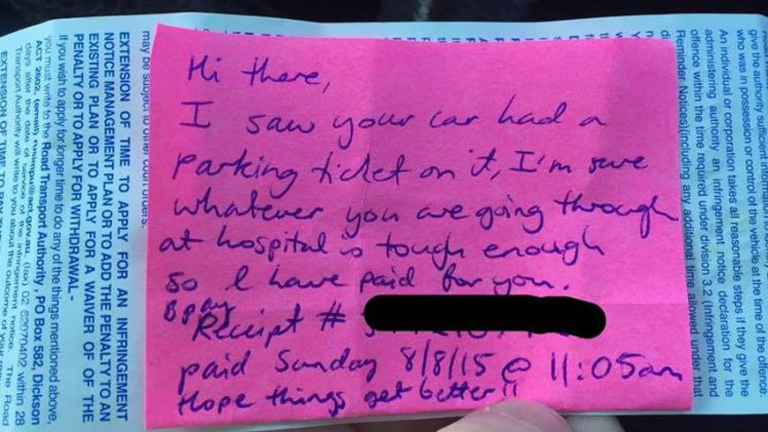 Hi there,
I saw your car had a
parking ticket on it, I'm sure
whatever you are going through
at hospital is tough enough
so I have paid for you.
Bpay
Receipt #
paid Sunday 8/8/15 @ 11:05am
Hope things get better!!
may be subject to other court orders.
EXTENSION OF TIME TO APPLY FOR AN INFRINGEMENT
NOTICE MANAGEMENT PLAN OR TO ADD THE PENALTY TO AN
EXISTING PLAN OR TO APPLY FOR A WAIVER OF OF THE
PENALTY OR TO APPLY FOR WITHDRAWAL -
If you wish to apply for longer time to do any of the things mentioned above,
you must write to the Road Transport Authority, PO Box 582, Dickson
ACT 2602, (email) (fax) 02 62070402 within 28
days after the date of service of the infringement notice. The Road
Transport Authority will write to you about the outcome of your
give the authority sufficient information to identify
who was in possession or control of the vehicle at the time of the offence.
An individual or corporation takes all reasonable steps if they give the
administering authority an infringement notice declaration for the
offence within the time required under division 3.2 (Infringement and
Reminder Notices)(including any additional time allowed under that